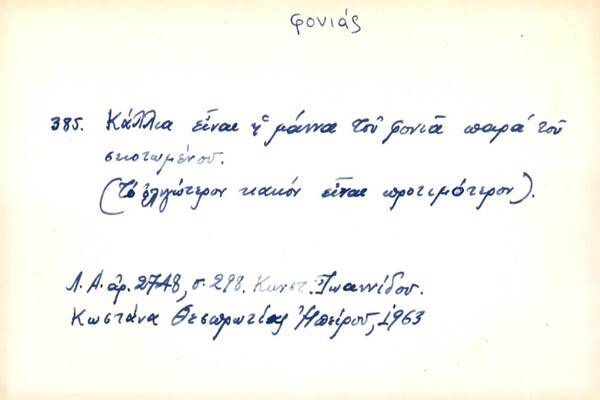 φονιάς
385. Κάλλια εἶναι ἡ μάννα τοῦ φονιᾶ παρά τοῦ
σκοτωμένου.
(Τό ὀλιγώτερον κακόν εἶναι προτιμότερον).
Λ.Α. ἀρ. 2748, σ. 298. Κωνστ. Ἰωαννίδου.
Κωστάνα Θεσπρωτίας Ἠπείρου, 1963